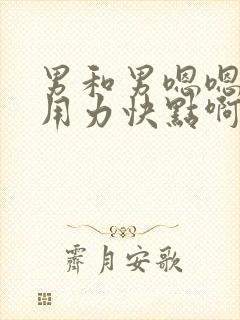 男和男嗯嗯
用力快點啊
霽月安歌